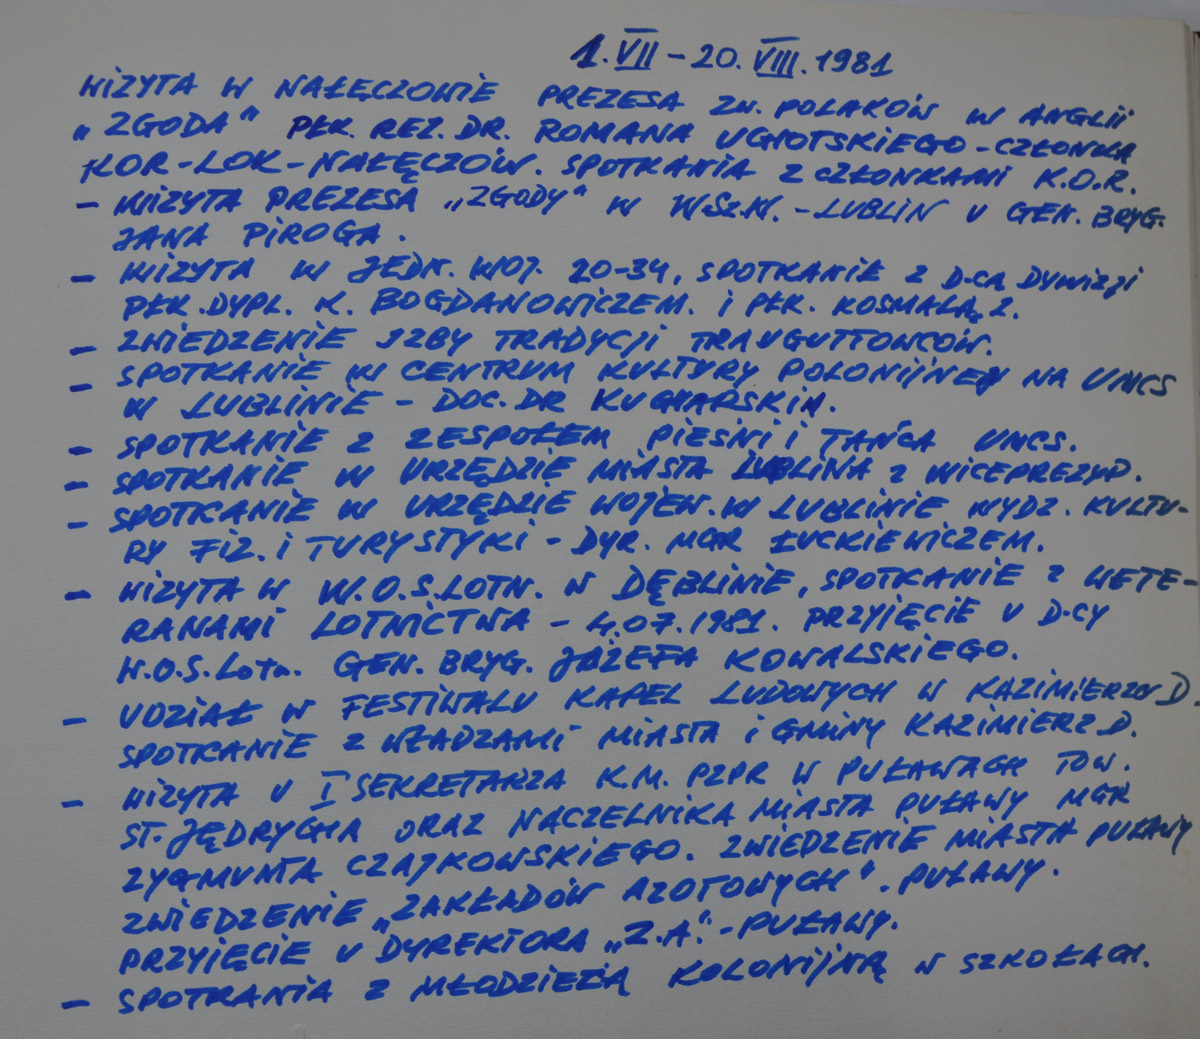 1.VII – 20.VIII.1981
WIZYTA W NAŁĘCZOWIE PREZESA ZW. POLAKÓW W ANGLII
„ZGODA" PŁK. REZ. DR. ROMANA UGIOTSKIEGO – CZŁONKA
KOR – LOK – NAŁĘCZÓW. SPOTKANIA Z CZŁONKAMI K.O.R.
– WIZYTA PREZESA „ZGODY" W W.SZ.W. – LUBLIN U GEN. BRYG.
JANA PIROGA.
– WIZYTA W JEDN. WOJ. 20-34, SPOTKANIE Z D-CĄ DYWIZJI
PŁK. DYPL. K. BOGDANOWICZEM. I PŁK. KOSMALĄ Z.
– ZWIEDZENIE IZBY TRADYCJI TRAUGUTTOWCÓW.
– SPOTKANIE W CENTRUM KULTURY POLONIJNEJ NA UMCS
W LUBLINIE – DOC. DR KUCHARSKIM.
– SPOTKANIE Z ZESPOŁEM PIEŚNI I TAŃCA UMCS.
– SPOTKANIE W URZĘDZIE MIASTA LUBLINA Z WICEPREZYD.
– SPOTKANIE W URZĘDZIE WOJEW. W LUBLINIE WYDZ. KULTU-
RY FIZ. I TURYSTYKI – DYR. MGR ŁUCKIEWICZEM.
– WIZYTA W W.O.S.LOTN. W DĘBLINIE, SPOTKANIE Z WETE-
RANAMI LOTNICTWA – 4.07.1981. PRZYIĘCIE U D-CY
W.O.S.Lotn. GEN. BRYG. JÓZEFA KOWALSKIEGO.
– UDZIAŁ W FESTIWALU KAPEL LUDOWYCH W KAZIMIERZU D.
SPOTKANIE Z WŁADZAMI MIASTA I GMINY KAZIMIERZ D.
– WIZYTA U I SEKRETARZA K.M. PZPR W PUŁAWACH TOW.
ST. JĘDRYCHA ORAZ NACZELNIKA MIASTA PUŁAWY MGR
ZYGMUNTA CZAJKOWSKIEGO. ZWIEDZENIE MIASTA PUŁAWY
ZWIEDZENIE „ZAKŁADÓW AZOTOWYCH". PUŁAWY.
PRZYIĘCIE U DYREKTORA „Z.A." – PUŁAWY.
– SPOTKANIA Z MŁODZIEŻĄ KOLONIJNĄ W SZKOŁACH.